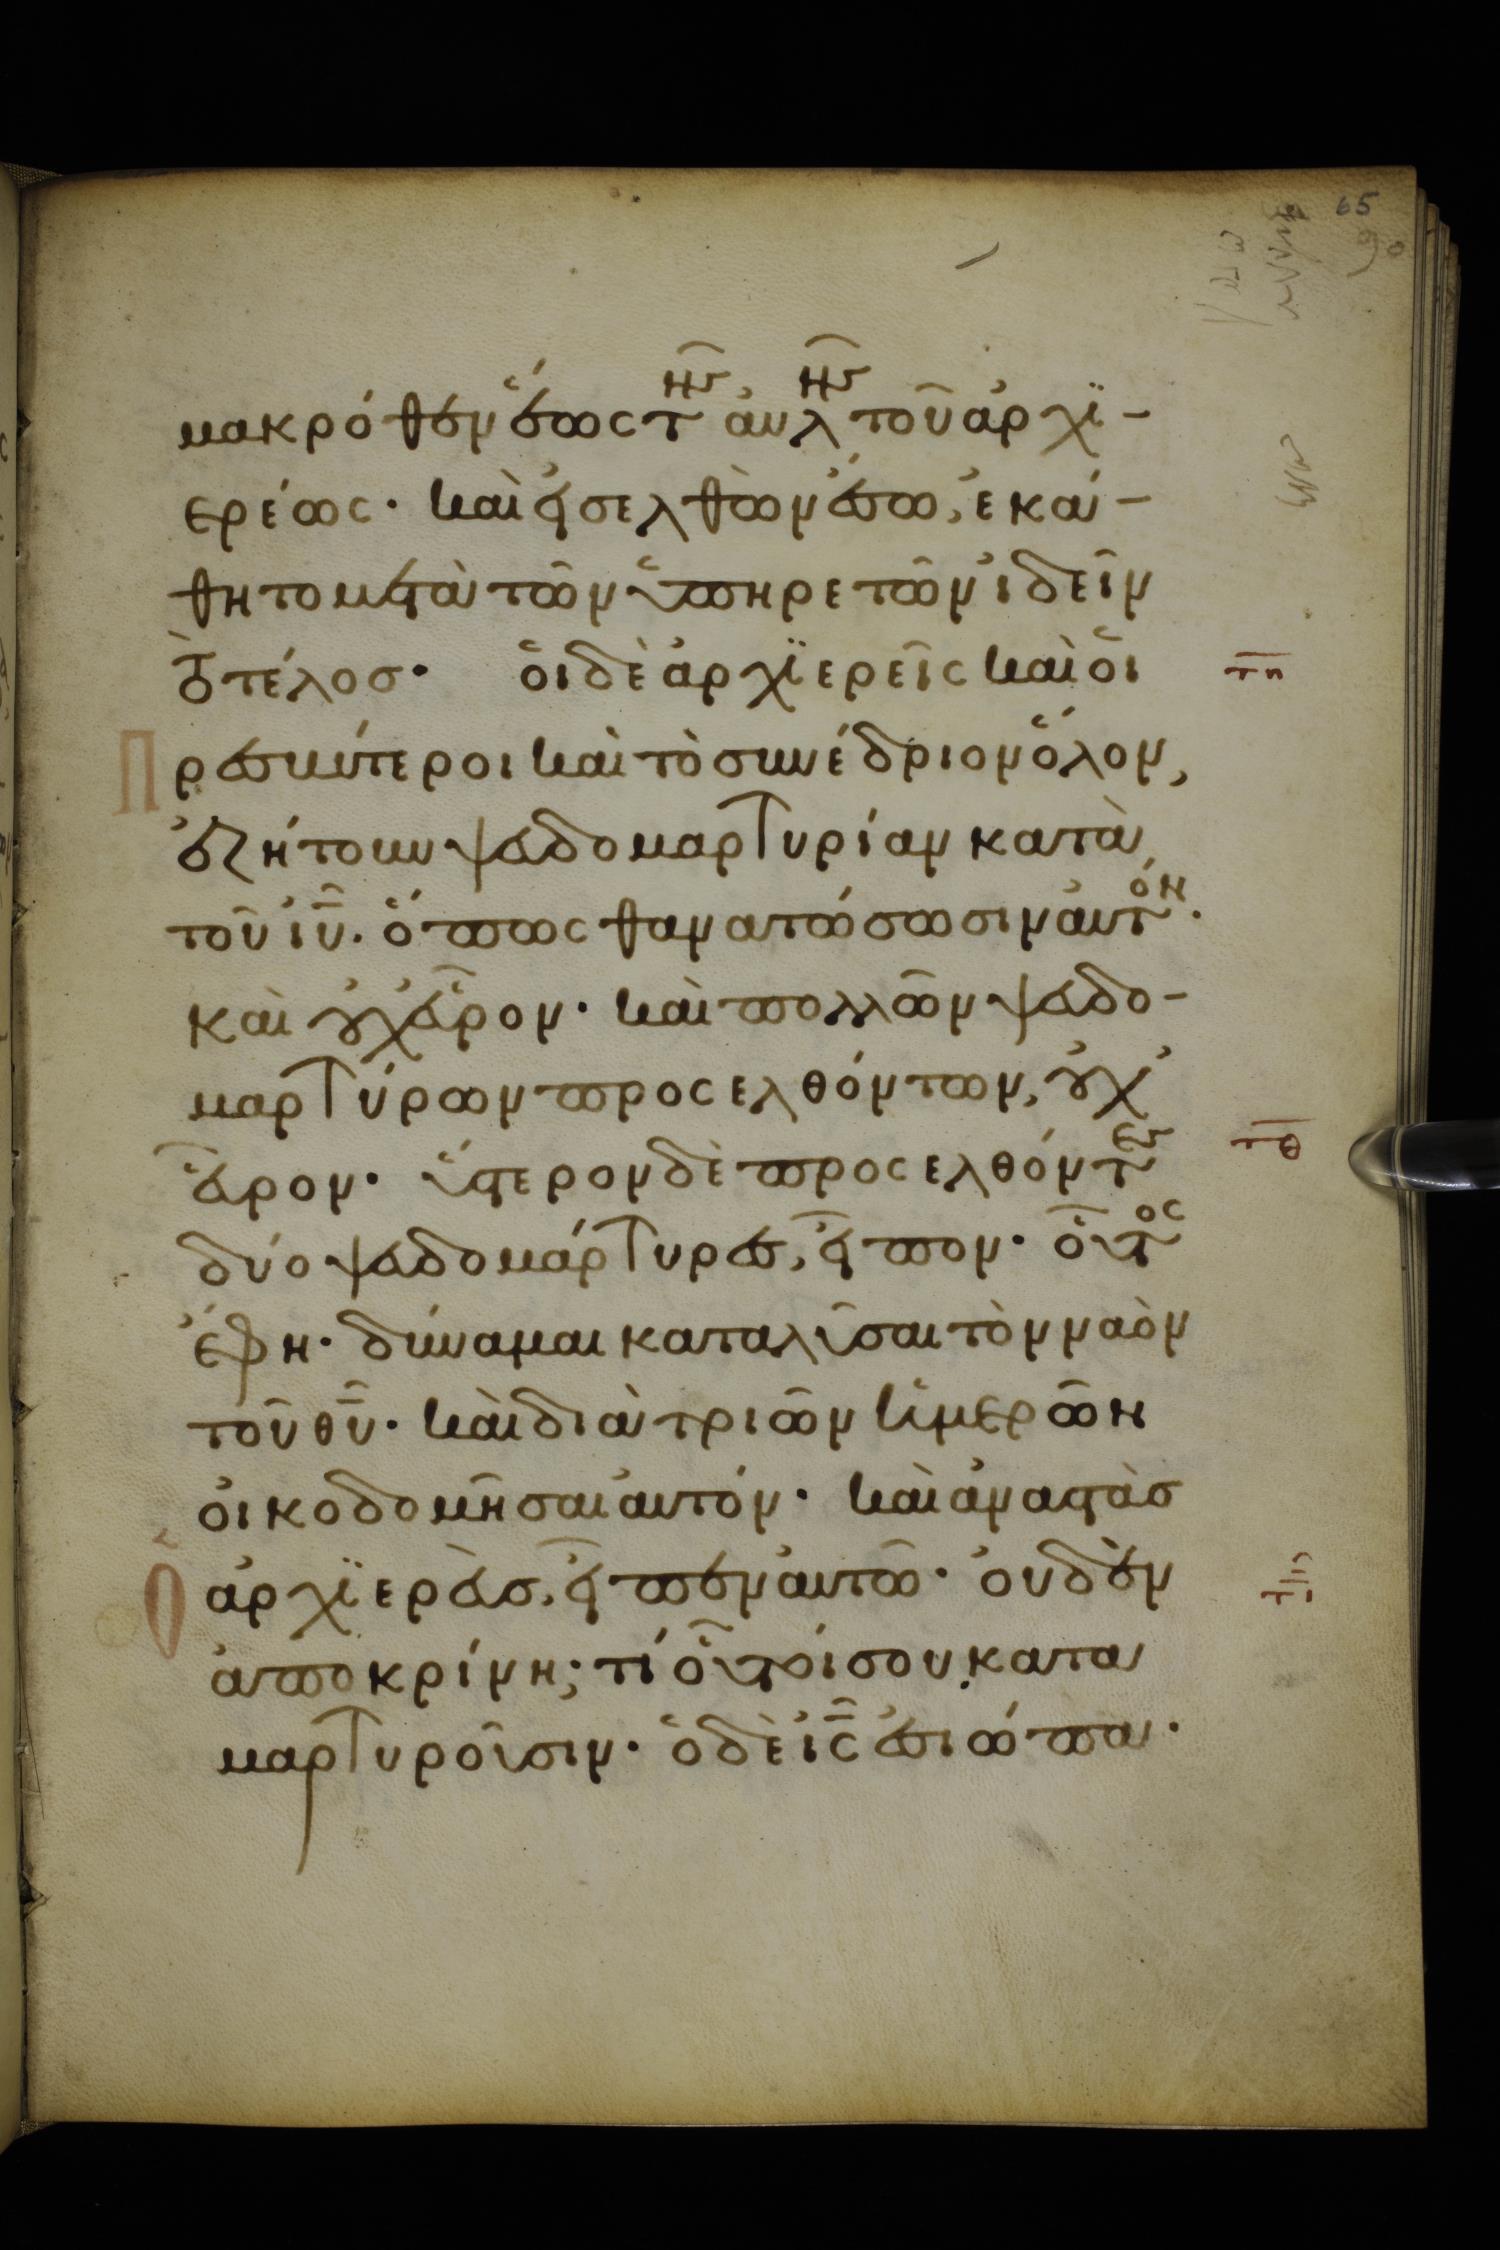 65
90
μακρόθεν ἕως τῆς αὐλῆς τοῦ ἀρχϊ-
ερέως· καὶ εἰσελθὼν ἔσω, ἐκά-
θητο μετὰ τῶν ὑπηρετῶν ἰδεῖν
τὸ τέλος· οἱ δὲ ἀρχϊερεῖς καὶ οἱ
Πρεσβύτεροι καὶ τὸ συνέδριον ὅλον,
ἐζήτουν ψευδομαρτυρίαν κατὰ
τοῦ ἰῦ. ὅπως θανατώσωσιν αὐτόν.
καὶ οὐχ εὗρον· καὶ πολλῶν ψευδο-
μαρτύρων προσελθόντων, οὐχ
εὗρον· ὕστερον δὲ προσελθόντες
δύο ψευδομάρτυρες, εἶπον· οὗτος
ἔφη· δύναμαι καταλῦσαι τὸν ναὸν
τοῦ θῦ· καὶ διὰ τριῶν ἡμερῶν
οἰκοδομῆσαι αὐτόν· καὶ ἀναστὰς
Ὁ ἀρχϊερεὺς, εἶπεν αὐτῶ· οὐδὲν
ἀποκρίνη; τί οὗτοί σου κατα
μαρτυροῦσιν· ὁ δὲ ἰς ἐσιώπα·
τη
τθ
τι